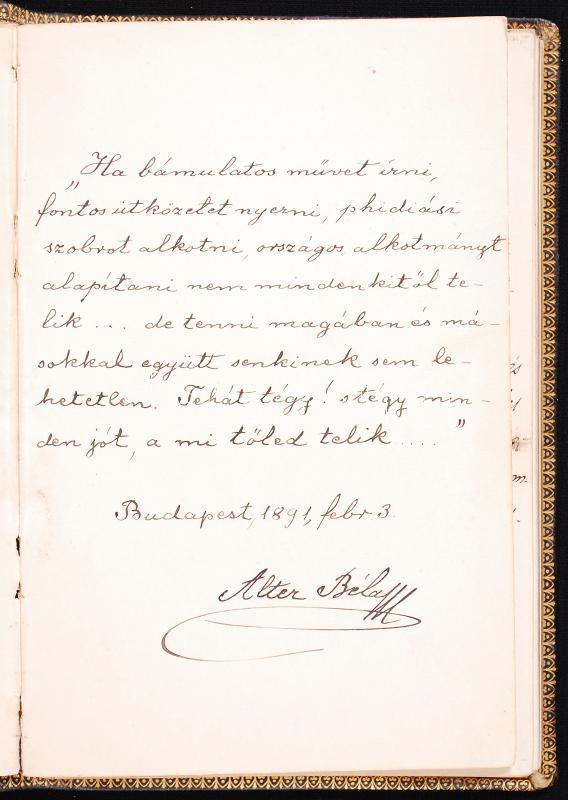 „Ha bámulatos művet írni,
fontos ütközetet nyerni, phidiási
szobrot alkotni, országos alkotmányt
alapítani nem mindenkitől te-
lik ... de tenni magában és má-
sokkal együtt senkinek sem le-
hetetlen. Tehát tégy! s tégy min-
den jót, a mi tőled telik ...."
Budapest, 1891, febr 3.
Alter Béla